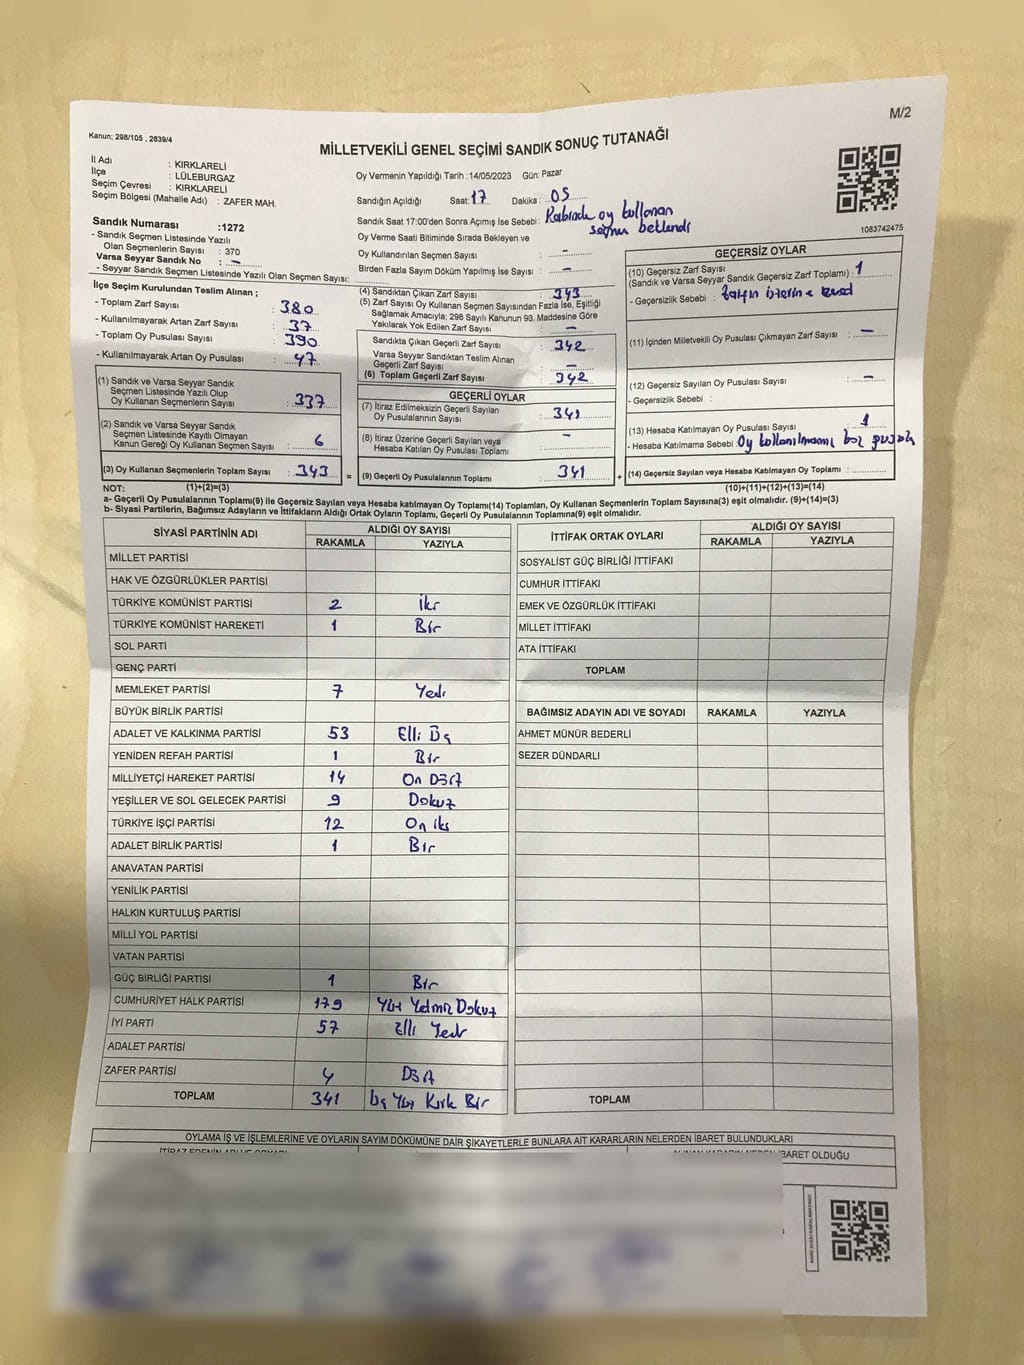 M/2
Kanun: 298/105 , 2839/4
MİLLETVEKİLİ GENEL SEÇİMİ SANDIK SONUÇ TUTANAĞI
İl Adı : KIRKLARELİ
İlçe : LÜLEBURGAZ
Seçim Çevresi : KIRKLARELİ
Seçim Bölgesi (Mahalle Adı) : ZAFER MAH.
Sandık Numarası :1272
- Sandık Seçmen Listesinde Yazılı
Olan Seçmenlerin Sayısı : 370
Varsa Seyyar Sandık No : –
- Seyyar Sandık Seçmen Listesinde Yazılı Olan Seçmen Sayısı:
Oy Vermenin Yapıldığı Tarih :14/05/2023 Gün: Pazar
Sandığın Açıldığı Saat: 17 Dakika : 05
Sandık Saat 17:00'den Sonra Açımış İse Sebebi : Kabinde oy kullanan
seçmen beklendi
Oy Verme Saati Bitiminde Sırada Bekleyen ve
Oy Kullandırılan Seçmen Sayısı : –
Birden Fazla Sayım Döküm Yapılmış İse Sayısı : –
1083742475
İlçe Seçim Kurulundan Teslim Alınan ;
- Toplam Zarf Sayısı : 380
- Kullanılmayarak Artan Zarf Sayısı : 37
- Toplam Oy Pusulası Sayısı : 390
- Kullanılmayarak Artan Oy Pusulası : 47
(1) Sandık ve Varsa Seyyar Sandık
Seçmen Listesinde Yazılı Olup
Oy Kullanan Seçmenlerin Sayısı : 337
(2) Sandık ve Varsa Seyyar Sandık
Seçmen Listesinde Kayıtlı Olmayan
Kanun Gereği Oy Kullanan Seçmen Sayısı : 6
(3) Oy Kullanan Seçmenlerin Toplam Sayısı : 343 =
(1)+(2)=(3)
(4) Sandıktan Çıkan Zarf Sayısı : 343
(5) Zarf Sayısı Oy Kullanan Seçmen Sayısından Fazla İse, Eşitliği
Sağlamak Amacıyla; 298 Sayılı Kanunun 93. Maddesine Göre
Yakılarak Yok Edilen Zarf Sayısı : –
Sandıkta Çıkan Geçerli Zarf Sayısı : 342
Varsa Seyyar Sandıktan Teslim Alınan
Geçerli Zarf Sayısı :
(6) Toplam Geçerli Zarf Sayısı : 342
GEÇERLİ OYLAR
(7) İtiraz Edilmeksizin Geçerli Sayılan
Oy Pusulalarının Sayısı : 341
(8) İtiraz Üzerine Geçerli Sayılan veya
Hesaba Katılan Oy Pusulası Toplamı : –
(9) Geçerli Oy Pusulalarının Toplamı : 341 +
GEÇERSİZ OYLAR
(10) Geçersiz Zarf Sayısı : 1
(Sandık ve Varsa Seyyar Sandık Geçersiz Zarf Toplamı)
- Geçersizlik Sebebi :
(11) İçinden Milletvekili Oy Pusulası Çıkmayan Zarf Sayısı : –
(12) Geçersiz Sayılan Oy Pusulası Sayısı : –
- Geçersizlik Sebebi :
(13) Hesaba Katılmayan Oy Pusulası Sayısı : 1
- Hesaba Katılmama Sebebi : Oy kullanılmamış boş pusula
(14) Geçersiz Sayılan veya Hesaba Katılmayan Oy Toplamı :
(10)+(11)+(12)+(13)=(14)
NOT:
a- Geçerli Oy Pusulalarının Toplamı(9) ile Geçersiz Sayılan veya Hesaba katılmayan Oy Toplamı(14) Toplamları, Oy Kullanan Seçmenlerin Toplam Sayısına(3) eşit olmalıdır. (9)+(14)=(3)
b- Siyasi Partilerin, Bağımsız Adayların ve İttifakların Aldığı Ortak Oyların Toplamı, Geçerli Oy Pusulalarının Toplamına(9) eşit olmalıdır.
SİYASİ PARTİNİN ADI ALDIĞI OY SAYISI
RAKAMLA YAZIYLA
MİLLET PARTİSİ
HAK VE ÖZGÜRLÜKLER PARTİSİ
TÜRKİYE KOMÜNİST PARTİSİ 2 İki
TÜRKİYE KOMÜNİST HAREKETİ 1 Bir
SOL PARTİ
GENÇ PARTİ
MEMLEKET PARTİSİ 7 Yedi
BÜYÜK BİRLİK PARTİSİ
ADALET VE KALKINMA PARTİSİ 53 Elli Üç
YENİDEN REFAH PARTİSİ 1 Bir
MİLLİYETÇİ HAREKET PARTİSİ 14 On Dört
YEŞİLLER VE SOL GELECEK PARTİSİ 9 Dokuz
TÜRKİYE İŞÇİ PARTİSİ 12 On iki
ADALET BİRLİK PARTİSİ 1 Bir
ANAVATAN PARTİSİ
YENİLİK PARTİSİ
HALKIN KURTULUŞ PARTİSİ
MİLLİ YOL PARTİSİ
VATAN PARTİSİ
GÜÇ BİRLİĞİ PARTİSİ 1 Bir
CUMHURİYET HALK PARTİSİ 179 Yüz Yetmiş Dokuz
İYİ PARTİ 57 Elli Yedi
ADALET PARTİSİ
ZAFER PARTİSİ 4 Dört
TOPLAM 341 Üç Yüz Kırk Bir
İTTİFAK ORTAK OYLARI ALDIĞI OY SAYISI
RAKAMLA YAZIYLA
SOSYALİST GÜÇ BİRLİĞİ İTTİFAKI
CUMHUR İTTİFAKI
EMEK VE ÖZGÜRLÜK İTTİFAKI
MİLLET İTTİFAKI
ATA İTTİFAKI
TOPLAM
BAĞIMSIZ ADAYIN ADI VE SOYADI RAKAMLA YAZIYLA
AHMET MÜNÜR BEDERLİ
SEZER DÜNDARLI
TOPLAM
OYLAMA İŞ VE İŞLEMLERİNE VE OYLARIN SAYIM DÖKÜMÜNE DAİR ŞİKAYETLERLE BUNLARA AİT KARARLARIN NELERDEN İBARET BULUNDUKLARI
İBARET OLDUĞU